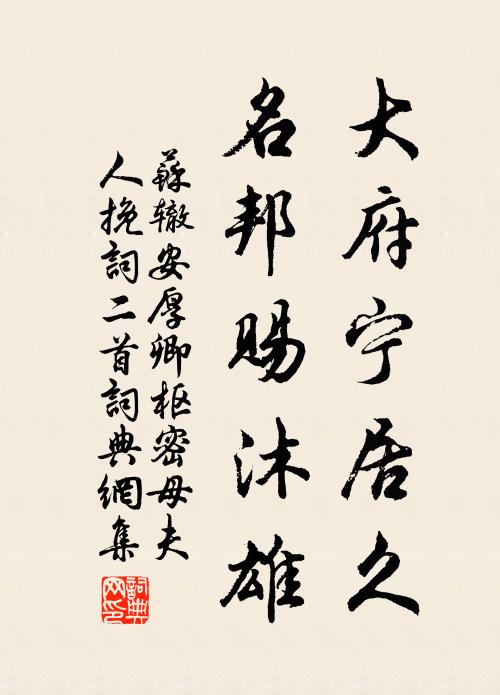 大府宁居久
名邦賜沐雄
蘇辙安厚卿枢密母夫
人挽詞二首詞典網集
詞典
网印